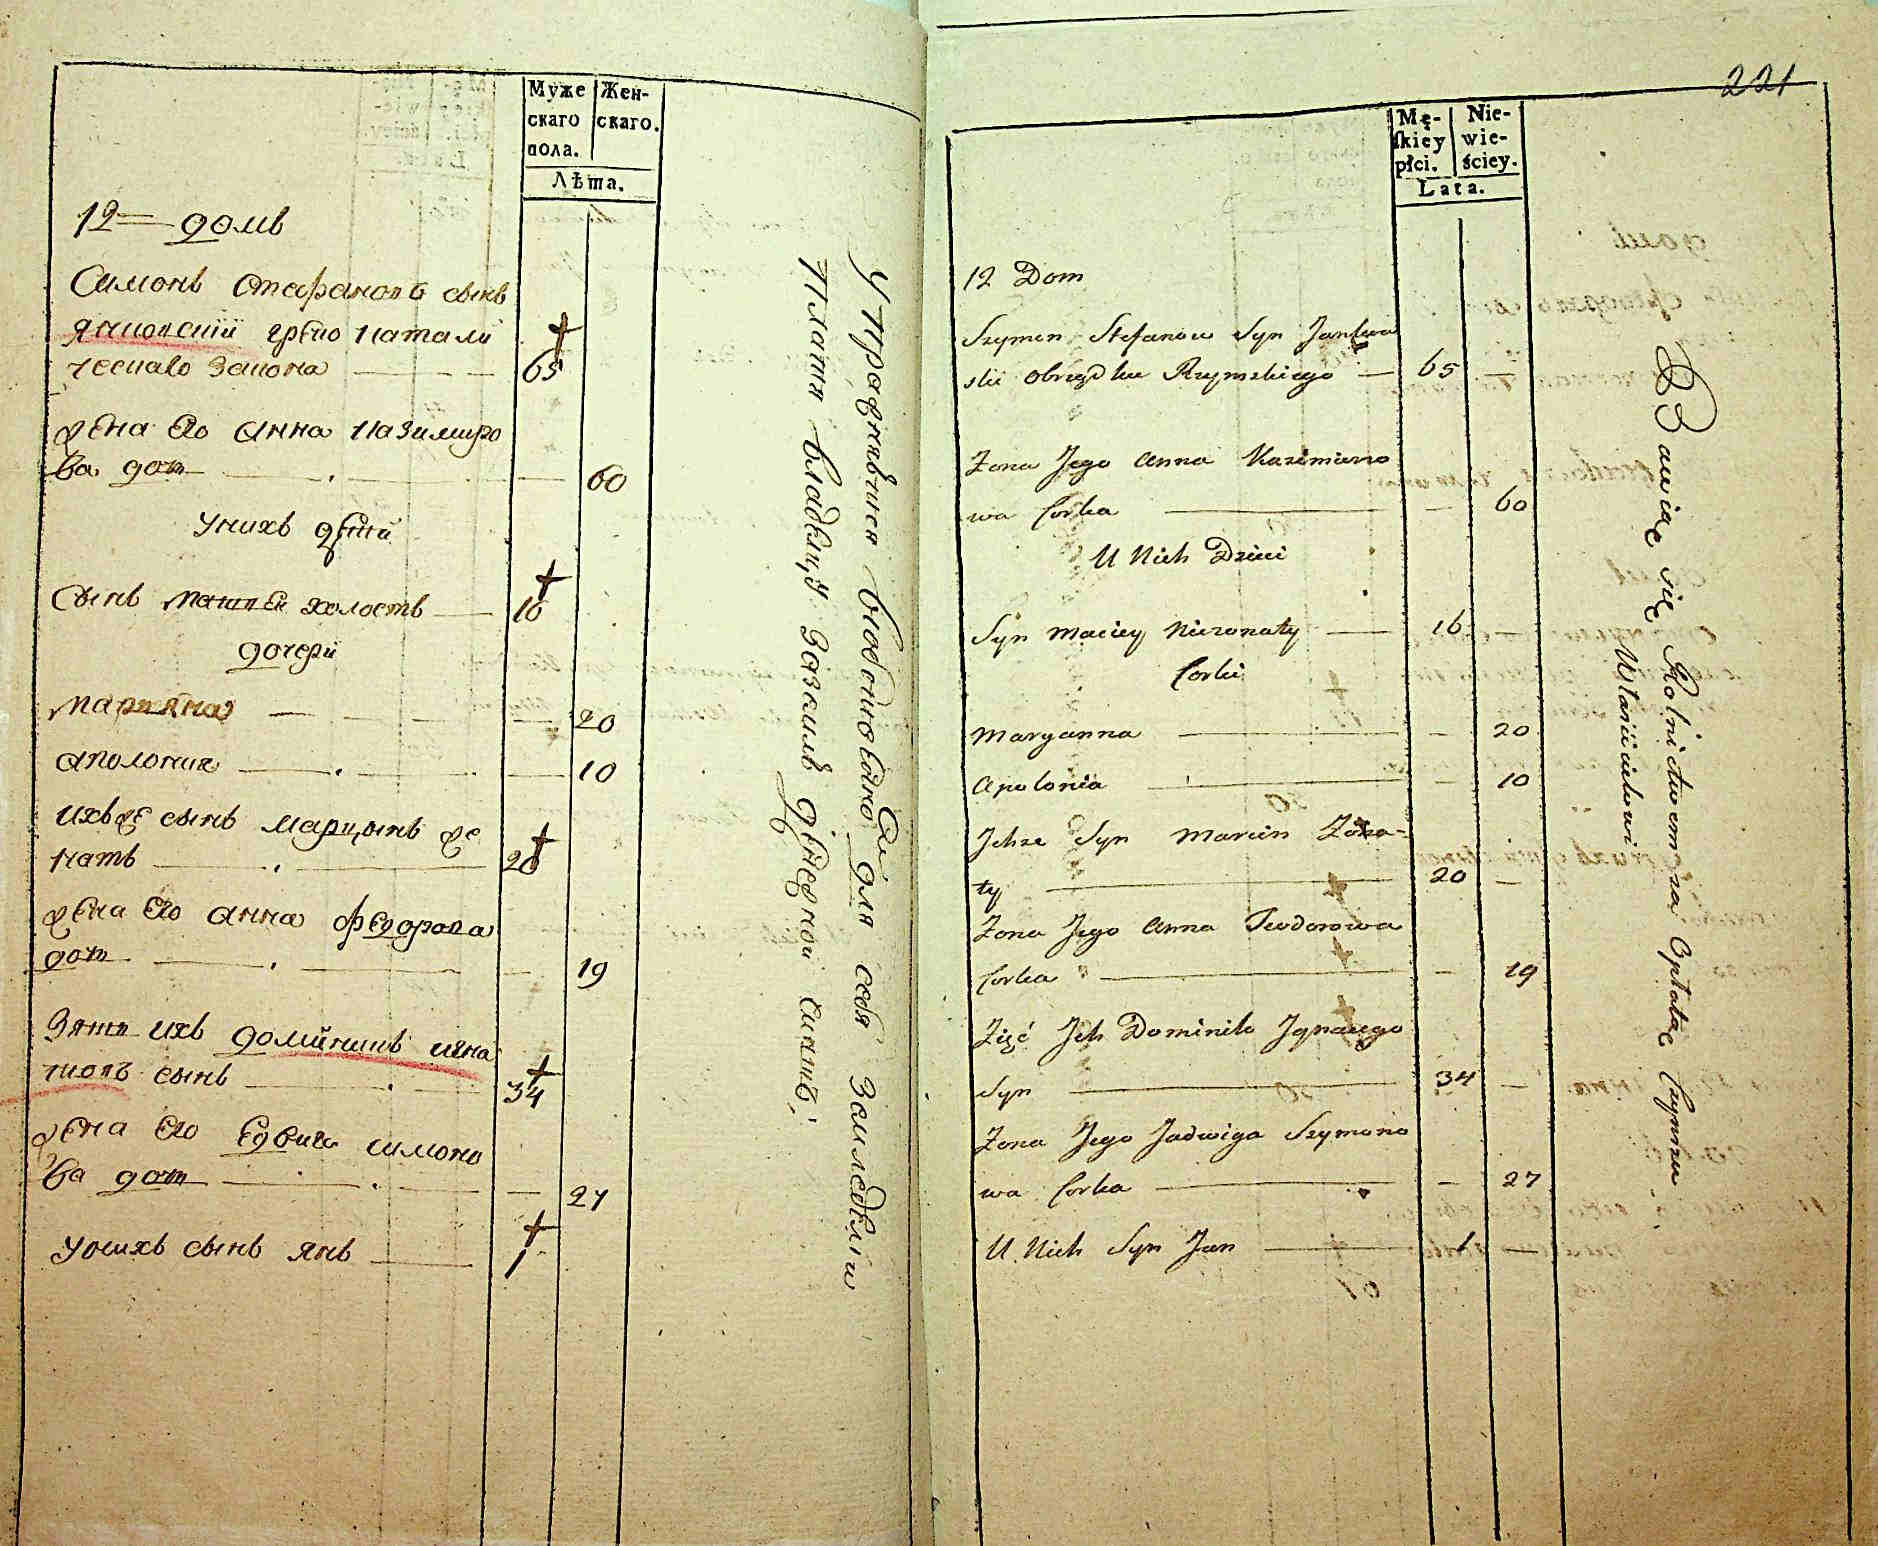 Муже
скаго
пола.
Жен-
скаго.
Лѣта.
12 домъ
Симонъ Стефановъ сынъ
Янковскій греко катали
ческаго закона 65
жена его анна казимиро
ва доч 60
У нихъ дѣти
Сынъ матвей холостъ 16
дочери
Марияна 20
аполония 10
ихъ же сынъ марцынъ же
натъ 20
жена его анна федорова
доч 19
Зять ихъ доминикъ игна
товъ сынъ 34
жена его Едвига симоно
ва доч 27
У онихъ сынъ янъ 1
Упражняется
для себя земледѣліи
платя владѣльцу
221
Mę-
ſkiey
płci.
Nie-
wie-
ściey.
Lata.
12 Dom
Szymon Stefanow Syn Jankow
ski obrządku Rzymskiego 65
Zona Jego Anna Kazimiero
wa Corka 60
U Nich Dzieci
Syn Maciey Niezonaty 16
Corki
Maryanna 20
Apolonia 10
Ichze Syn Marcin Zona-
ty 20
Zona Jego Anna Teodorowa
Corka 19
Zięć Jch Dominik Jgnacego
Syn 34
Zona Jego Jadwiga Szymono
wa Corka 27
U Nich Syn Jan 1
Bawiąc się Rolnictwem za Opłatą Czynszu
Właścicielowi